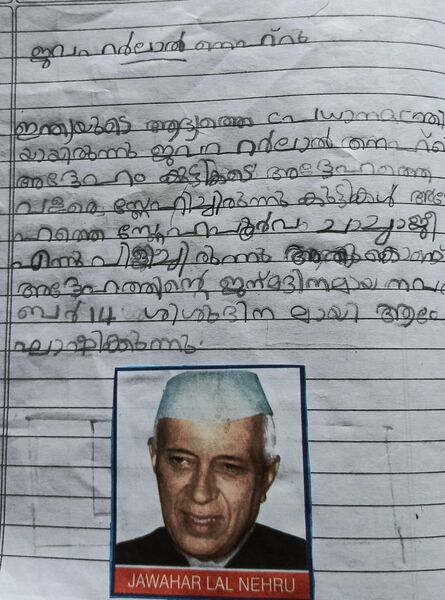 ജവഹർലാൽ നെഹ്റു
ഇന്ത്യയുടെ ആദ്യത്തെ പ്രധാനമന്ത്രി
യായിരുന്നു ജവഹർലാൽ നെഹ്റു
അദ്ദേഹം കുട്ടികളെ അദ്ദേഹത്തെ
വളരെ സ്നേഹിച്ചിരുന്നു കുട്ടികൾ അദ്ദേ
ഹത്തെ സ്നേഹപൂർവം ചാച്ചാജീ
എന്നു വിളിച്ചിരുന്നു അതുകൊണ്ട്
അദ്ദേഹത്തിന്റെ ജന്മദിനമായ നവം
ബർ 14 ശിശുദിനമായി ആ
ഘോഷിക്കുന്നു.
JAWAHAR LAL NEHRU